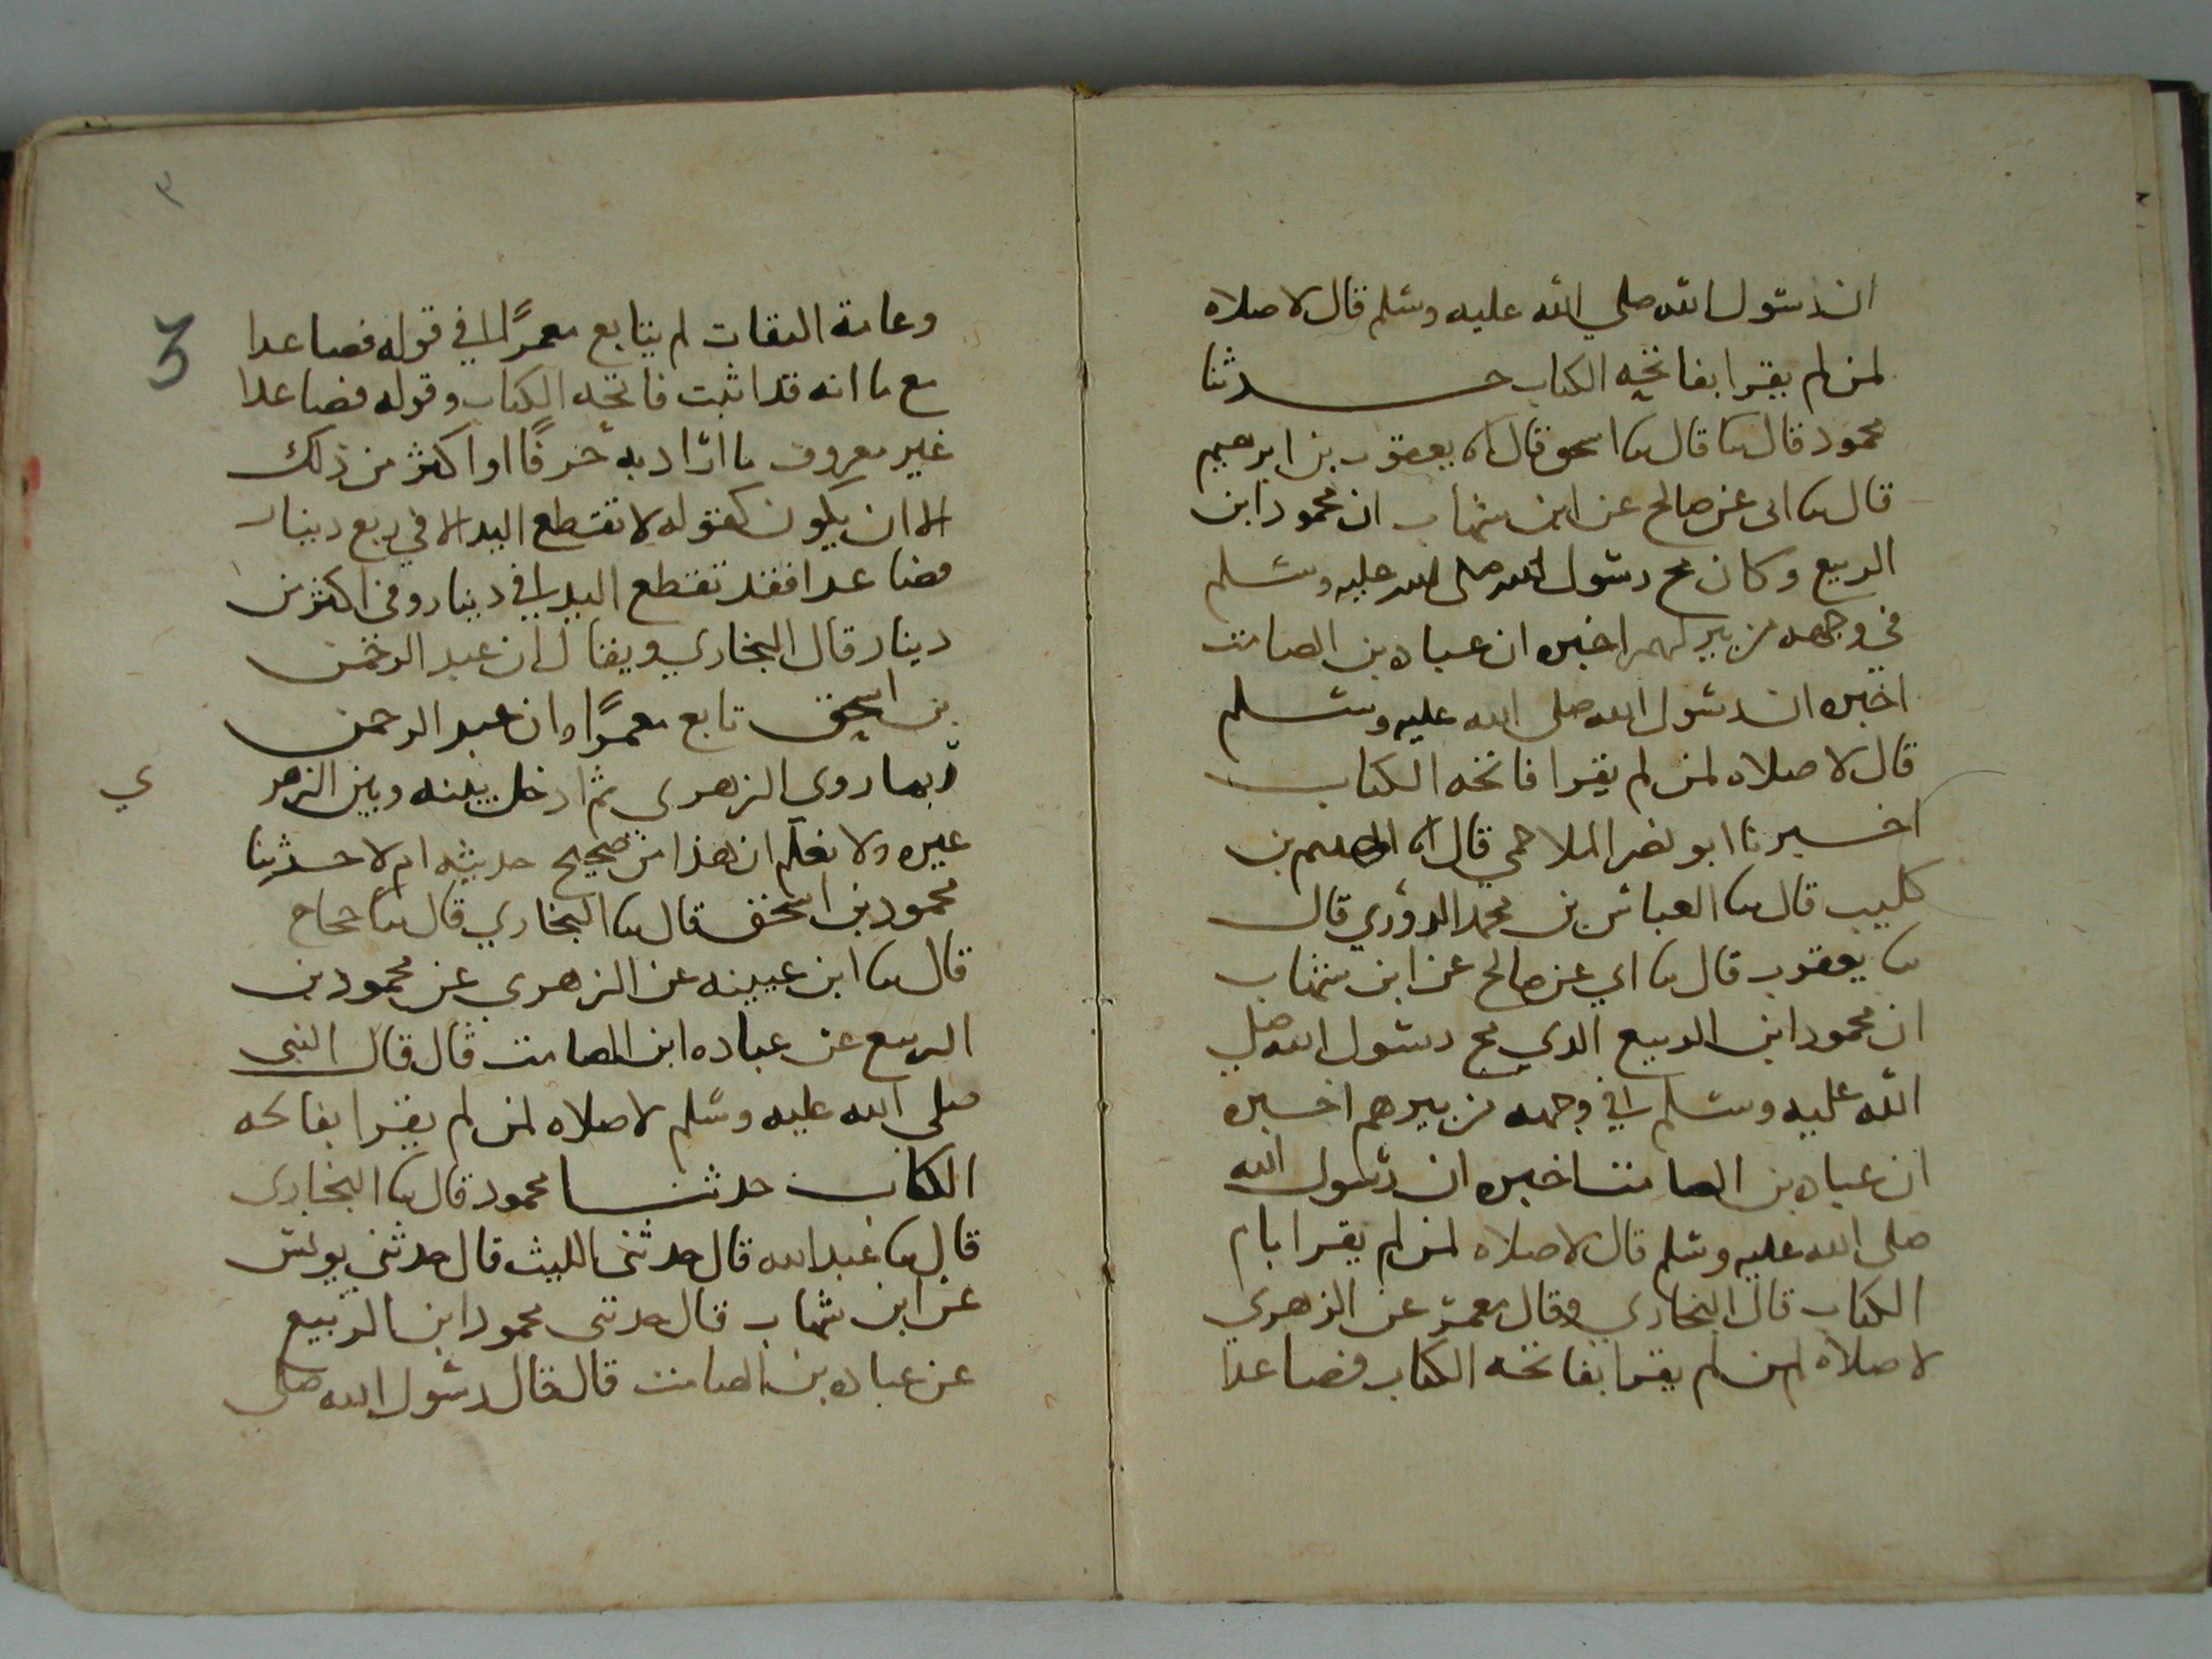 ان رسول الله صلي الله عليه وسلم قال لا صلاه
لمن لم يقرا بفاتحه الكتاب حدثنا
محمود قال سا قال سا اسحق قال انا يعقوب بن ابرهيم
قال سا ابى عن صالح عن ابن شهاب ان محمود ابن
الربيع وكان مج رسول الله صلى الله عليه وسلم
في وجهه من بيرلهم اخبره ان عباده بن الصامت
اخبره ان رسول الله صلى الله عليه وسلم
قال لا صلاه لمن لم يقرا فاتحه الكتاب
اخبرنا ابو نصر الملاحمي قال انا الهيثم بن
كليب قال سا العباس بن محمد الدوري قال
سا يعقوب قال سا ابي عن صالح عن ابن شهاب
ان محمود ابن الربيع الذي مج رسول الله صلي
الله عليه وسلم في وجهه من بيرهم اخبره
ان عباده بن الصامت اخبره ان رسول الله
صلى الله عليه وسلم قال لا صلاه لمن لم يقرا بام
الكتاب قال البخاري وقال معمر عن الزهري
لا صلاه لمن لم يقرا بفاتحه الكتاب فصاعدا
٣
3
وعامة الثقات لم يتابع معمرًا في قوله فصاعدا
مع ما انه قد اثبت فاتحه الكتاب وقوله فصاعدا
غير معروف ما اراد به حرفًا او اكثر من ذلك
الا ان يكون كقوله لا تقطع اليد الا في ربع دينار
فصاعدا فقد تقطع اليد في دينار وفي اكثر من
دينار قال البخاري ويقال ان عبد الرحمن
بن اسحق تابع معمرًا وان عبد الرحمن
ربما روي الزهرى ثم ادخل بينه وبين الزهر
ي
غيره ولا نعلم ان هذا من صحيح حديثه ام لا حدثنا
محمود بن اسحق قال سا البخاري قال سا حجاج
قال سا ابن عيينه عن الزهري عن محمود بن
الربيع عن عباده ابن الصامت قال قال النبى
صلى الله عليه وسلم لا صلاه لمن لم يقرا بفاتحه
الكتاب حدثنا محمود قال سا البخارى
قال سا عبد الله قال حدثنى الليث قال حدثني يونس
عن ابن شهاب قال حدثنى محمود ابن الربيع
عن عباده بن الصامت قال قال رسول الله صلى